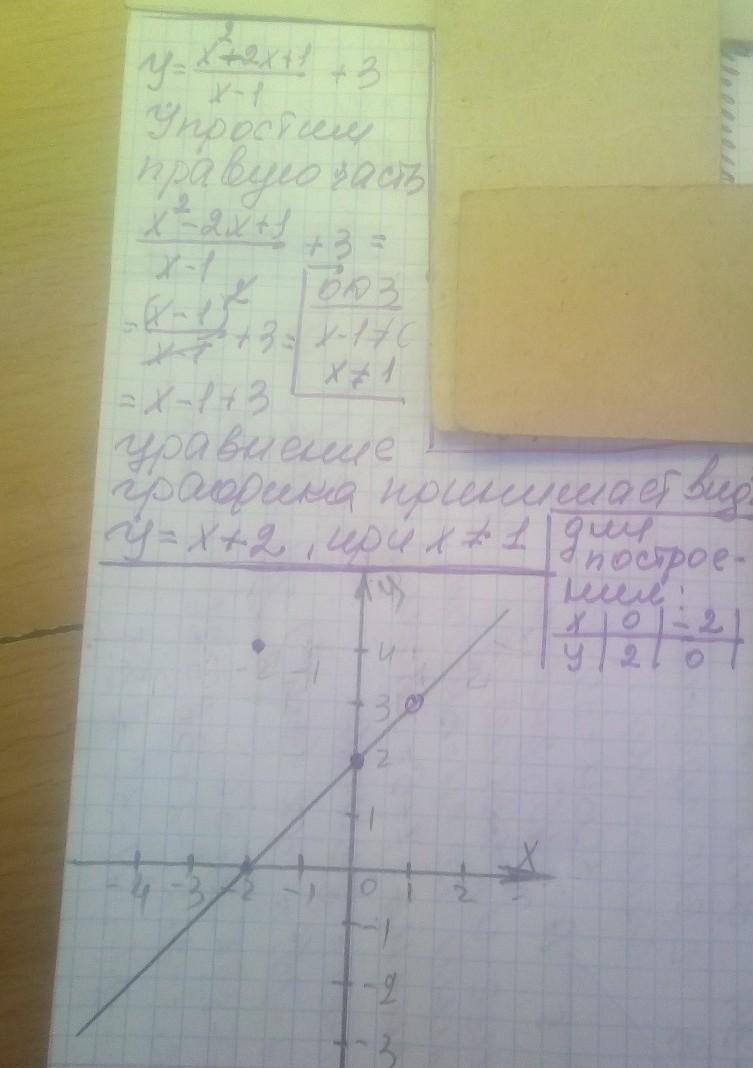 y = (x²+2x+1)/(x-1) + 3
Упростим
правую часть
(x²-2x+1)/(x-1) + 3 =
= (x-1)²/(x-1) + 3 =
ОДЗ
x-1≠0
x≠1
= x-1+3
уравнение
графика принимает вид
y = x+2, при x≠1
для
построе-
ния:
x | 0 | -2
y | 2 | 0
y
-2 -1 4 2
3
2
1
x
-4 -3 -2 -1 0 1 2
-1
-2
-3